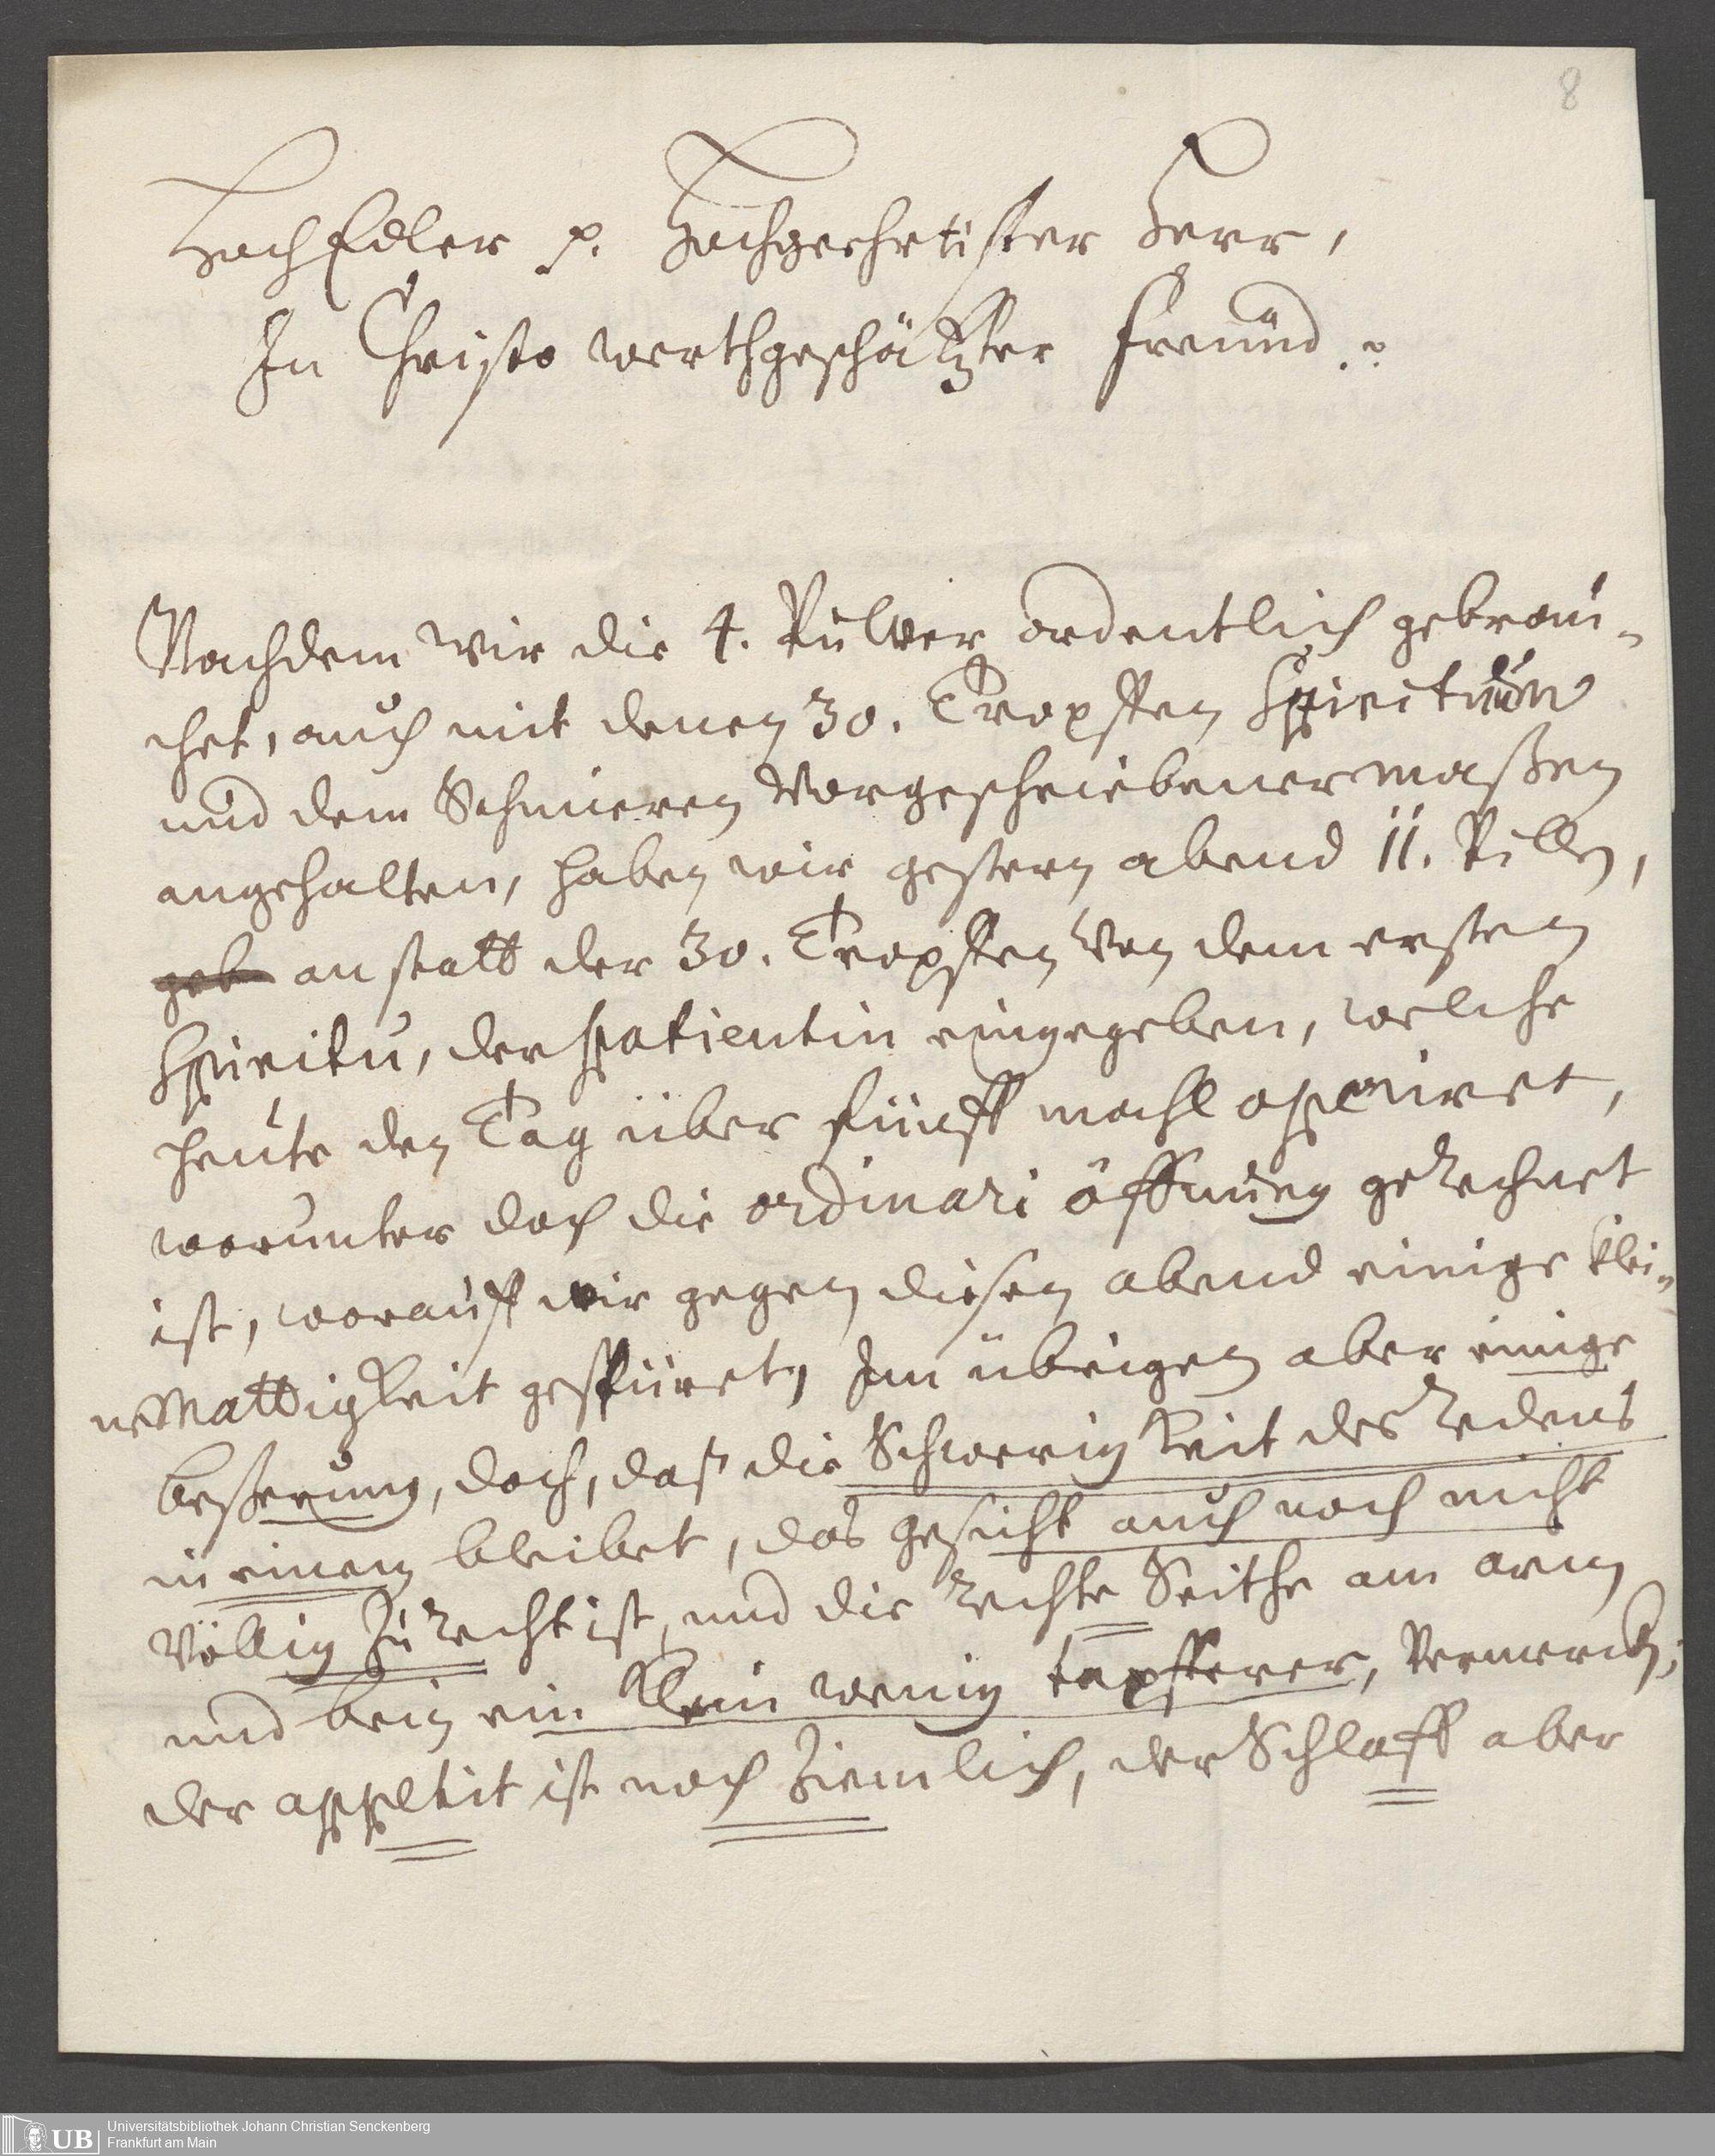 8
HochEdler p. Hochgeehrtister Herr,
In Christo werthgeschätzter Freund.
Nachdem wir die 4. Pulver ordentlich gebrau-
chet, auch mit denen 30. Tropffen Spirituum
und dem Schmieren vorgeschriebener maßen
angehalten, haben wir gestern abend 11. Pillen,
geb anstatt der 30. Tropffen von dem ersten
Spiritu, der patientin eingegeben, welche
heute den Tag über fünff mahl operiret,
worunter doch die ordinari öffnung gerechnet
ist, worauff wir gegen diesen abend einige klei-
ne Mattigkeit gespüret, Im übrigen aber einige
beßerung, doch, daß die Schwerigkeit des Redens
in einem bleibet, das gesicht auch noch nicht
völlig zu recht ist, und die rechte Seithe am arm
und bein ein klein wenig tapfferer, vermercken;
der appetit ist noch ziemlich, der Schlaff aber
UB
Universitätsbibliothek Johann Christian Senckenberg
Frankfurt am Main